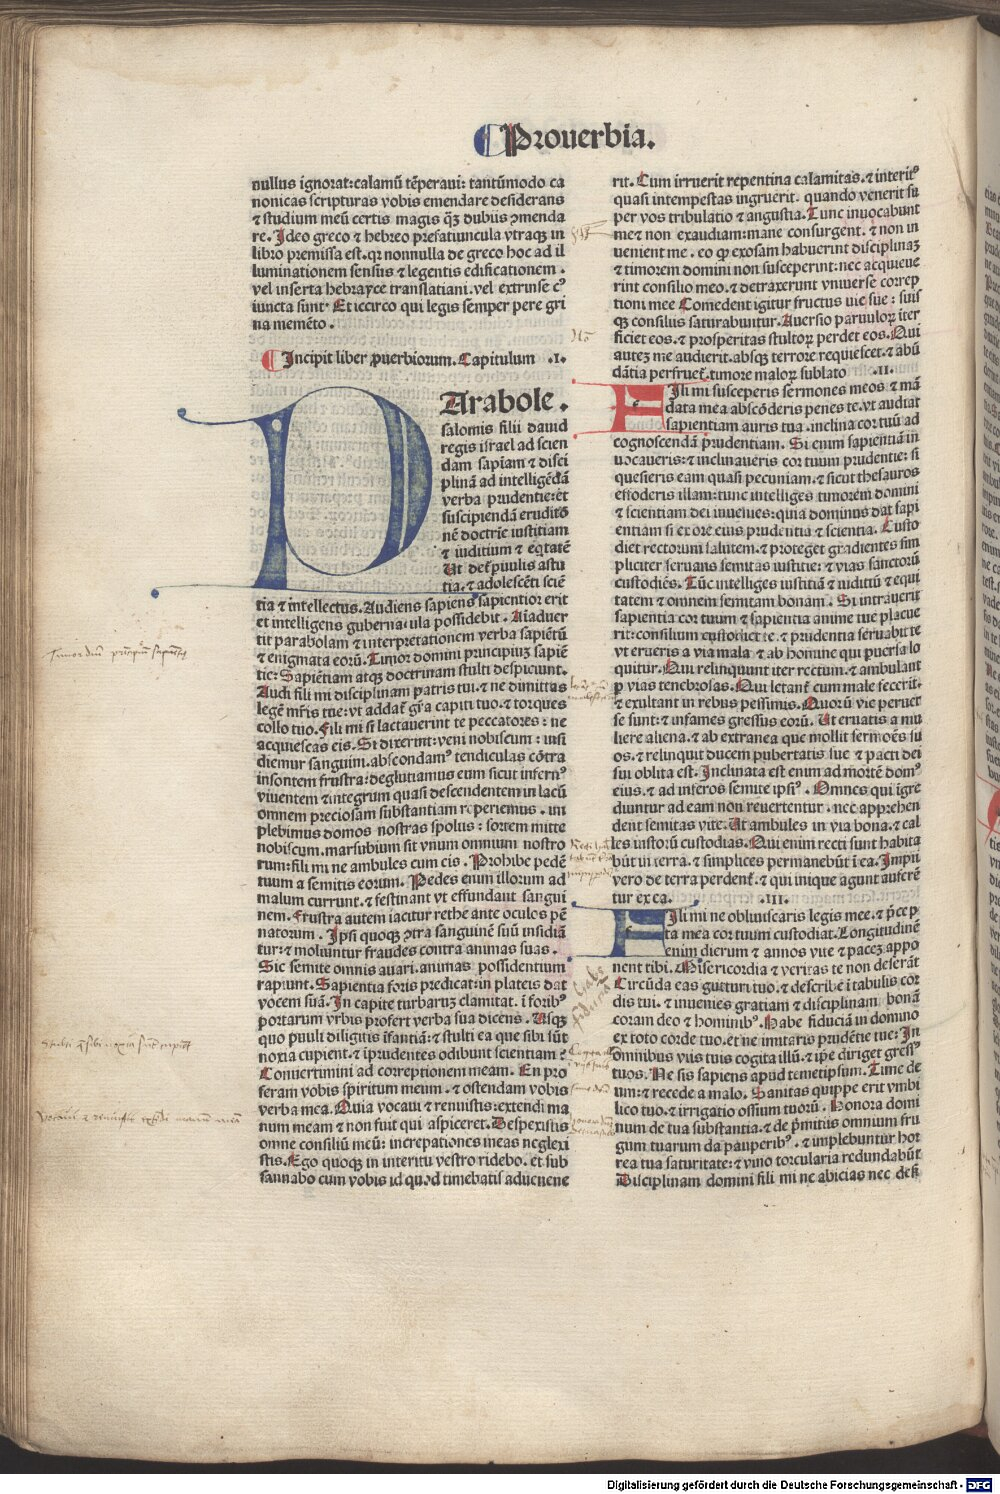 Prouerbia.
nullus ignorat:calamū tēperaui: tantūmodo ca
nonicas scripturas vobis emendare desiderans
⁊ studium meū certis magis q̄ȝ dubiis ꝯmenda
re. Ideo greco ⁊ hebreo prefatiuncula vtraqȝ in
libro premissa est. qꝛ nonnulla de greco hoc ad il
luminationem sensus ⁊ legentis edificationem.
vel inserta hebrayce translatiani. vel extrinse cꝰ
iuncta sunt. Et iccirco qui legis semper pere gri
na memēto.
Incipit liber ꝓuerbiorum. Capitulum .I.
Parabole.
salomis filii dauid
regis israel ad scien
dam sapiam ⁊ disci
plinā ad intelligēdā
verba prudentie:et
suscipiendā eruditō
nē doctrie iustitiam
⁊ iuditium ⁊ eqtatē
Ut det᷑ puulis astu
tia. ⁊ adolescēti sciē
tia ⁊ intellectus. Audiens sapiens sapientior erit
et intelligens gubernacula possidebit. Aīaduer
tit parabolam ⁊ interpretationem verba sapiētū
⁊ enigmata eorū. Timor domini principiuȝ sapiē
tie: Sapiētiam atqȝ doctrinam stulti despiciunt.
Audi fili mi disciplinam patris tui. ⁊ ne dimittas
legē mr̄is tue: vt addat᷑ gr̄a capiti tuo. ⁊ torques
collo tuo. Fili mi si lactauerint te peccatores: ne
acquiescas eis. Si dixerint: veni nobiscum: insi
diemur sanguini. abscondamꝰ tendiculas cōtra
insontem frustra: deglutiamus eum sicut infernꝰ
viuentem ⁊ integrum quasi descendentem in lacū
omnem preciosam substantiam reperiemus. im
plebimus domos nostras spoliis: sortem mitte
nobiscum. marsubium sit vnum omnium nostro
rum: fili mi ne ambules cum eis. Prohibe pedē
tuum a semitis eorum. Pedes enim illorum ad
malum currunt. ⁊ festinant vt effundant sangui
nem. Frustra autem iacitur rethe ante oculos pē
natorum. Ipsi quoqȝ ꝯtra sanguinē suū insidiā
tur: ⁊ moliuntur fraudes contra animas suas.
Sic semite omnis auari. animas possidentium
rapiunt. Sapientia foris predicat: in plateis dat
vocem suā. In capite turbaruȝ clamitat. ī foribꝰ
portarum vrbis profert verba sua dicens. Usqȝ
quo puuli diligitis īfantiā: ⁊ stulti ea que sibi sūt
noxia cupient. ⁊ īprudentes odibunt scientiam:
Conuertimini ad correptionem meam. En pro
feram vobis spiritum meum. ⁊ ostendam vobis
verba mea. Quia vocaui ⁊ renuistis: extendi ma
num meam ⁊ non fuit qui aspiceret. Despexistis
omne consiliū meū: increpationes meas neglexi
stis. Ego quoqȝ in interitu vestro ridebo. et sub
sannabo cum vobis id quod timebatis aduenene
rit. Cum irruerit repentina calamitas. ⁊ interitꝰ
quasi intempestas ingruerit. quando venerit su
per vos tribulatio ⁊ angustia. Tunc inuocabunt
me⁊ non exaudiam: mane consurgent. ⁊ non in
uenient me. eo ꝙ exosam habuerint disciplinaȝ
⁊ timorem domini non susceperint: nec acquieue
rint consilio meo. ⁊ detraxerunt vniuerse correp
tioni mee Comedent igitur fructus uie sue: suis
qȝ consiliis saturabuntur. Auersio paruuloꝝ iter
ficiet eos. ⁊ prosperitas stultoꝝ perdet eos. Qui
auteȝ me audierit. absqȝ terrore requiescet. ⁊ abū
dātia perfruet᷑. timore maloꝝ sublato .II.
Fili mi susceperis sermones meos ⁊ mā
data mea abscōderis penes te. vt audiat
sapientiam auris tua. inclina cor tuū ad
cognoscendam prudentiam. Si enim sapientiā in
uocaueris: ⁊ inclinaueris cor tuum prudentie: si
quesieris eam quasi pecuniam. ⁊ sicut thesauros
effoderis illam: tunc intelliges timorem domini
⁊ scientiam dei inuenies: quia dominus dat sapi
entiam si ex ore eius prudentia ⁊ scientia. Custo
diet rectorum salutem. ⁊ proteget gradientes sim
pliciter seruans semitas iustitie: ⁊ vias sanctorū
custodiēs. Tūc intelliges iustitiā ⁊ iuditiū ⁊ equi
tatem ⁊ omnem semitam bonam. Si intrauerit
sapientia cor tuum ⁊ sapientia anime tue placue
rit: consilium custodiet te. ⁊ prudentia seruabit te
vt erueris a via mala ⁊ ab homine qui puersa lo
quitur. Qui relinquunt iter rectum. ⁊ ambulant
ꝑ vias tenebrosas. Qui letant᷑ cum male fecerit.
⁊ exultant in rebus pessimis. Quorū vie peruer
se sunt: ⁊ infames gressus eorū. Ut eruatis a mu
liere aliena. ⁊ ab extranea que mollit sermoēs su
os. ⁊ relinquit ducem pubertatis sue ⁊ pacti dei
sui oblita est. Inclinata est enim ad mortē domꝰ
eius. ⁊ ad inferos semite ipsiꝰ. Omnes qui īgre
diuntur ad eam non reuertentur. nec apprehen
dent semitas vite. Ut ambules in via bona. ⁊ cal
les iustorū custodias. Qui enim recti sunt habita
būt in terra. ⁊ simplices permanebūt ī ea. Impii
vero de terra perdent᷑. ⁊ qui inique agunt auferē
tur ex ea. .III.
Fili mi ne obliuiscaris legis mee. ⁊ p̄cep
ta mea cor tuum custodiat. Longitudinē
enim dierum ⁊ annos vite ⁊ paceȝ appo
nent tibi. Misericordia ⁊ veritas te non deserāt
Circūda eas gutturi tuo. ⁊ describe ī tabulis cor
dis tui. ⁊ inuenies gratiam ⁊ disciplinam bonā
coram deo ⁊ hominibꝰ. Habe fiduciā in domino
ex toto corde tuo. et ne imitaris prudētie tue: In
omnibus viis tuis cogita illū. ⁊ ip̄e diriget gressꝰ
tuos. Ne sis sapiens apud temetipsum. Time de
um: ⁊ recede a malo. Sanitas quippe erit vmbi
lico tuo. ⁊ irrigatio ossium tuorū. Honora domi
num de tua substantia. ⁊ de p̄mitiis omnium fru
gum tuarum da pauperibꝰ. ⁊ implebuntur hor
rea tua saturitate: ⁊ vino torcularia redundabūt
Disciplinam domini fili mi ne abicias nec def
Digitalisierung gefördert durch die Deutsche Forschungsgemeinschaft - DFG